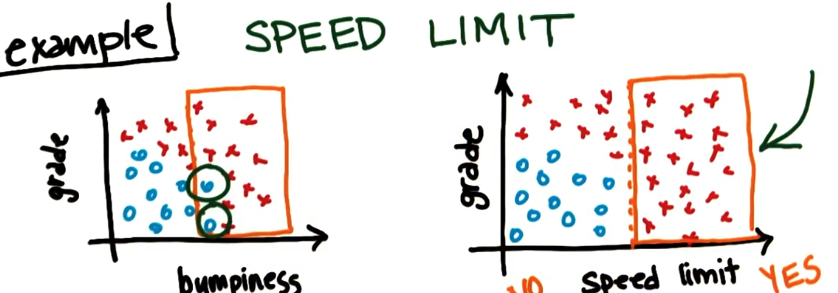 example
SPEED LIMIT
grade
bumpiness
grade
NO
speed limit
YES